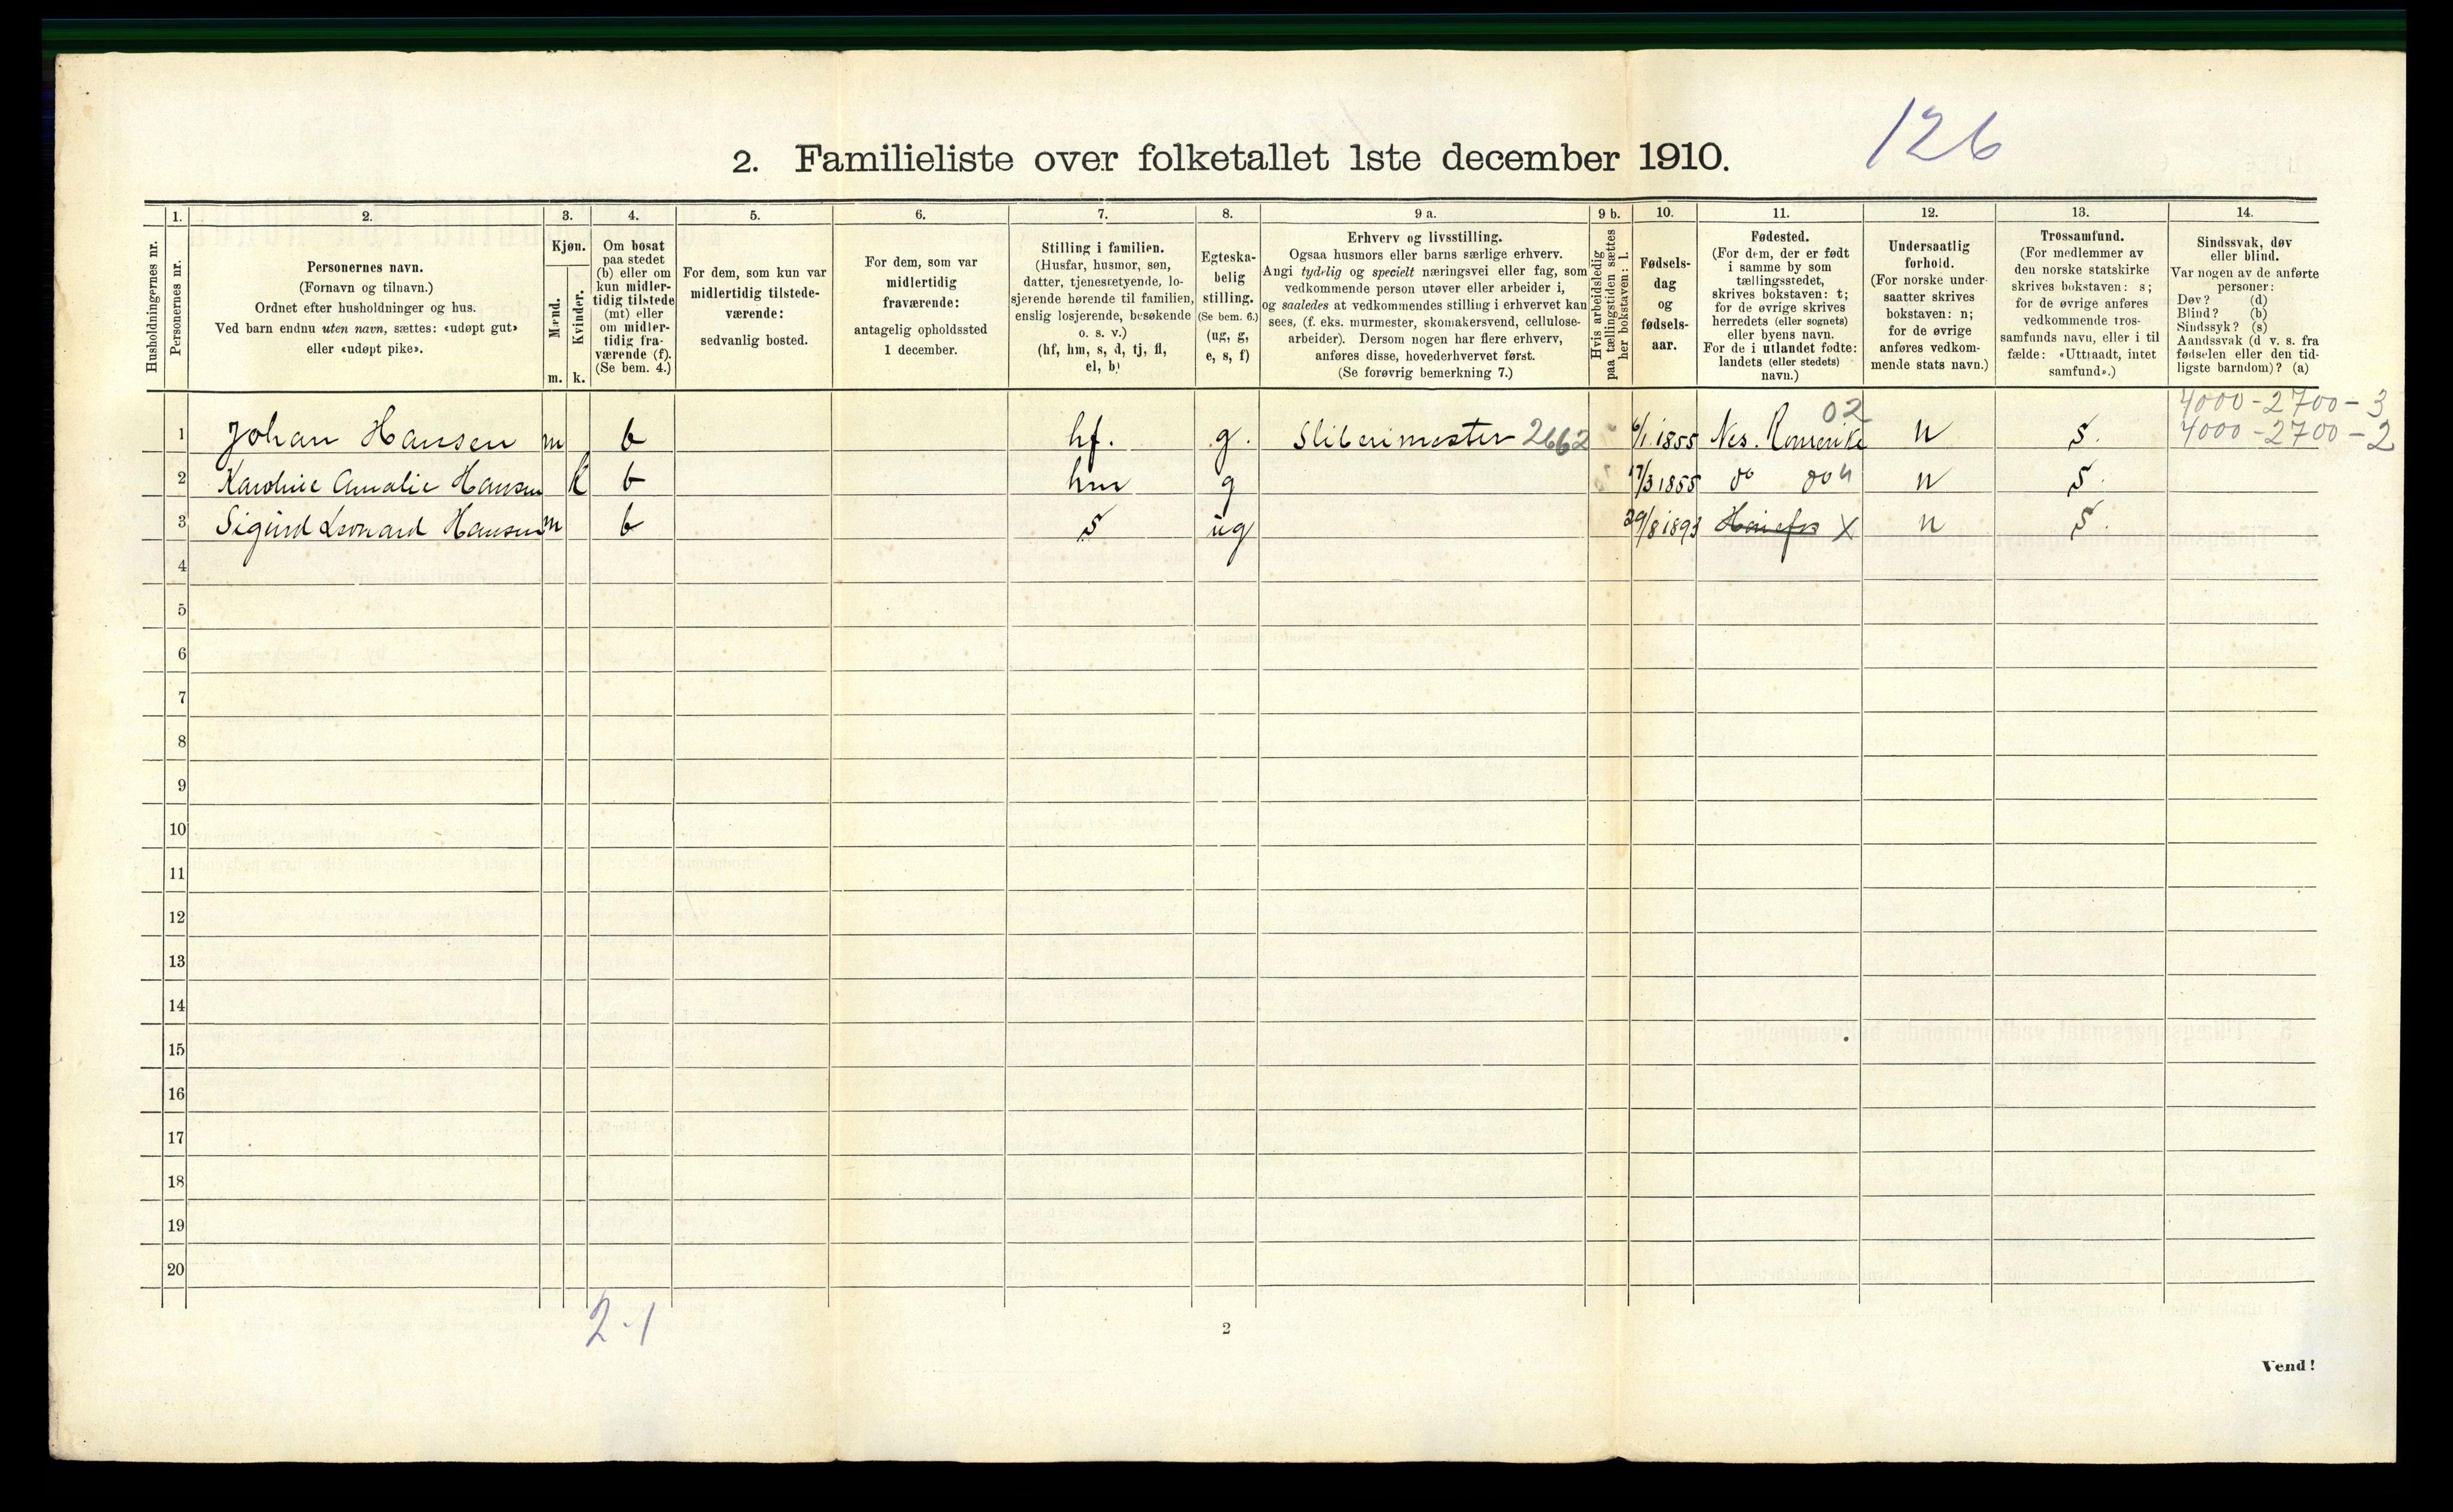 126
2. Familieliste over folketallet 1ste december 1910.
Husholdningernes nr.
1.
Personernes nr.
2.
Personernes navn.
(Fornavn og tilnavn.)
Ordnet efter husholdninger og hus.
Ved barn endnu uten navn, sættes: «udøpt gut»
eller «udøpt pike».
3.
Kjøn.
Mænd.
Kvinder.
m. k.
4.
Om bosat
paa stedet
(b) eller om
kun midler-
tidig tilstede
(mt) eller
om midler-
tidig fra-
værende (f).
(Se bem. 4.)
5.
For dem, som kun var
midlertidig tilstede-
værende:
sedvanlig bosted.
6.
For dem, som var
midlertidig
fraværende:
antagelig opholdssted
1 december.
7.
Stilling i familien.
(Husfar, husmor, søn,
datter, tjenestetyende, lo-
sjerende hørende til familien,
enslig losjerende, besøkende
o. s. v.)
(hf, hm, s, d, tj, fl,
el, b)
8.
Egteska-
belig
stilling.
(Se bem. 6.)
(ug, g,
e, s, f)
9 a.
Erhverv og livsstilling.
Ogsaa husmors eller barns særlige erhverv.
Angi tydelig og specielt næringsvei eller fag, som
vedkommende person utøver eller arbeider i,
og saaledes at vedkommendes stilling i erhvervet kan
sees, (f. eks. murmester, skomakersvend, cellulose-
arbeider). Dersom nogen har flere erhverv,
anføres disse, hovederhvervet først.
(Se forøvrig bemerkning 7.)
9 b.
Hvis arbeidsledig
paa tællingstiden sættes
her bokstaven: l.
10.
Fødsels-
dag
og
fødsels-
aar.
11.
Fødested.
(For dem, der er født
i samme by som
tællingsstedet,
skrives bokstaven: t;
for de øvrige skrives
herredets (eller sognets)
eller byens navn.
For de i utlandet fødte:
landets (eller stedets)
navn.)
12.
Undersaatlig
forhold.
(For norske under-
saatter skrives
bokstaven: n;
for de øvrige
anføres vedkom-
mende stats navn.)
13.
Trossamfund.
(For medlemmer av
den norske statskirke
skrives bokstaven: s;
for de øvrige anføres
vedkommende tros-
samfunds navn, eller i til
fælde: «Uttraadt, intet
samfund».)
14.
Sindssvak, døv
eller blind.
Var nogen av de anførte
personer:
Døv? (d)
Blind? (b)
Sindssyk? (s)
Aandssvak (d v. s. fra
fødselen eller den tid-
ligste barndom)? (a)
02 4000-2700-3
1 Johan Hansen m b hf. g. Sliberimester 2662 6/1 1855 Nes. Romerike n s. 4000-2700-2
2 Karoline Amalie Hansen k b hm g 17/3 1855 do do n s.
3 Sigurd Leonard Hansen m b s ug 29/8 1893 X n s.
4
5
6
7
8
9
10
11
12
13
14
15
16
17
18
19
20
2-1
2
Vend!